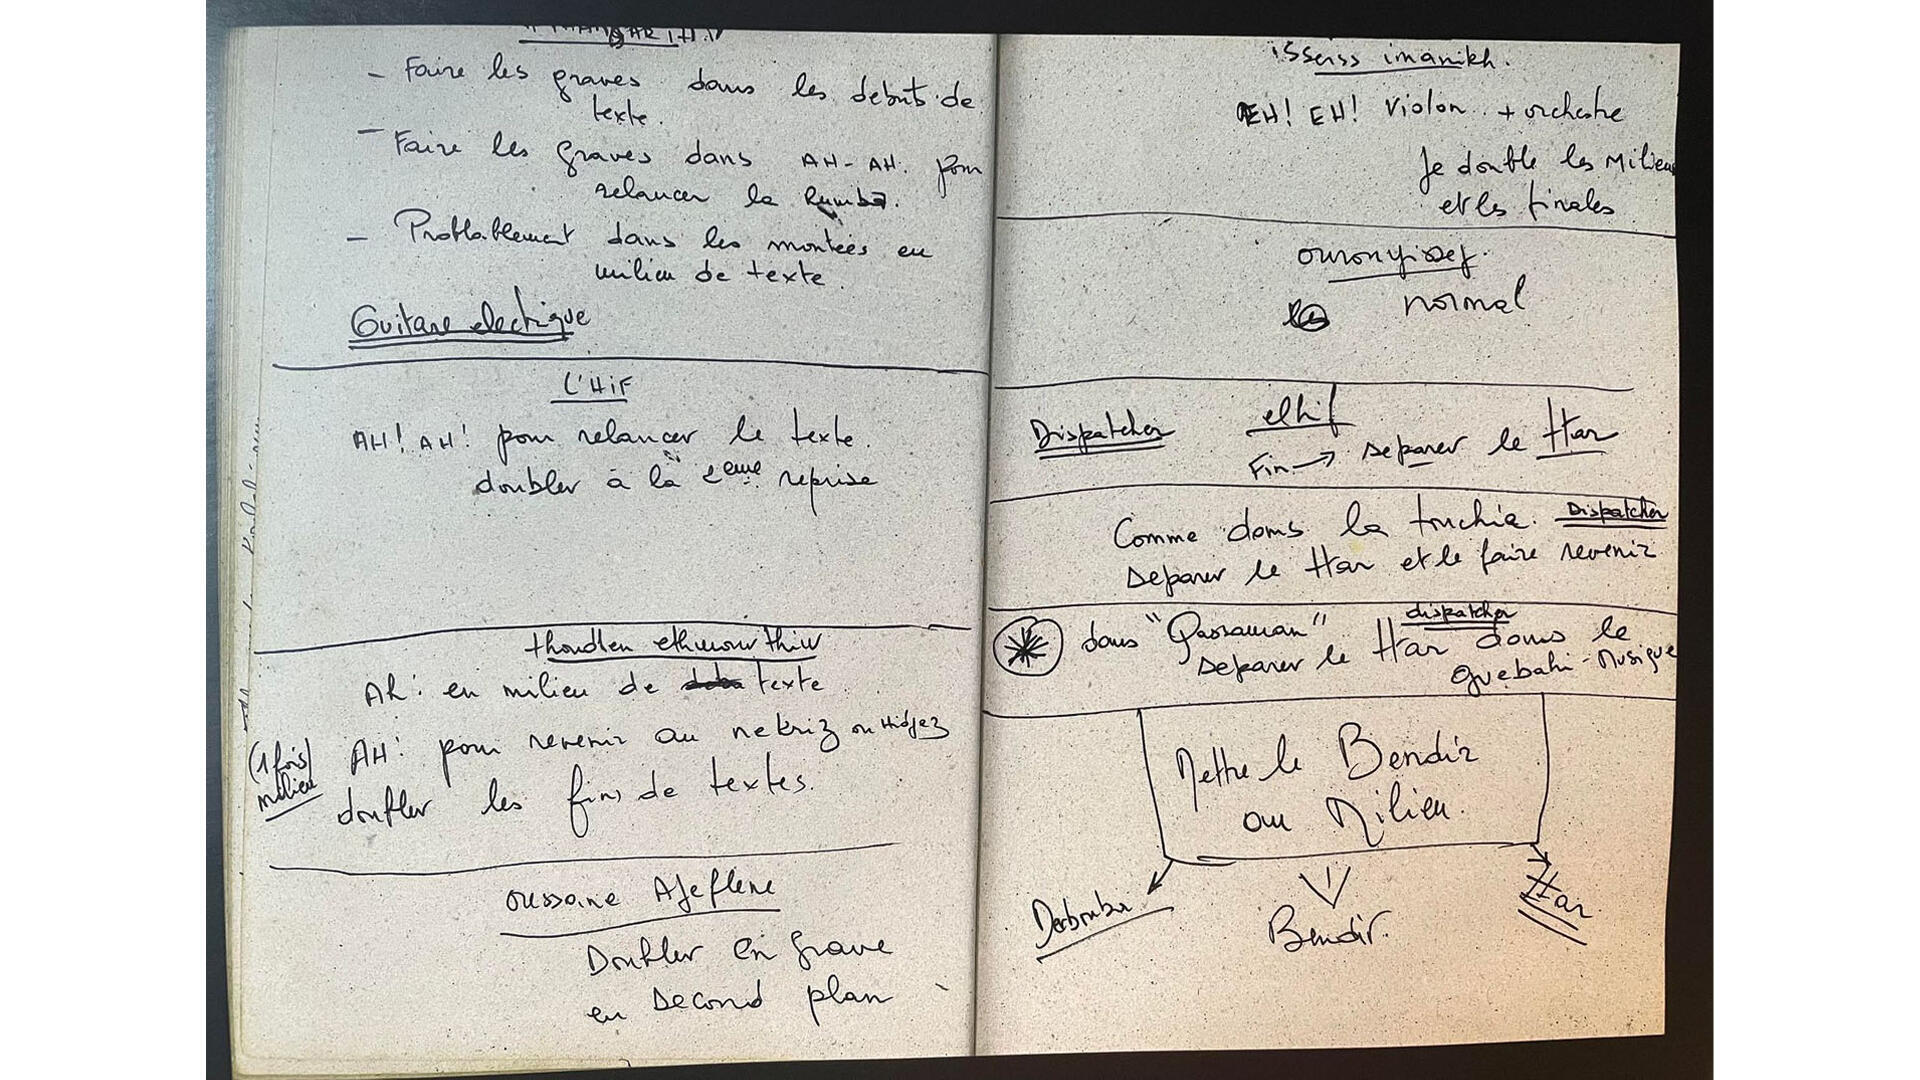 - Faire les graves dans les debuts de
texte.
- Faire les graves dans AH-AH. pour
relancer la Rumba.
- Problablement dans les montées en
milieu de texte.
Guitare electrique
L'HiF
AH! AH! pour relancer le texte
doubler à la 2eme reprise
thoudten
Ah! en milieu de texte
(1 fois) milieu
AH! pour revenir au nekriz ou Hidjez
doubler les fins de textes.
oussaine Ajeflene
Doubler en grave
en second plan
isseiss imanikh.
EH! EH! Violon + orchestre
Je double les Milieux
et les finales
normal
Dispatcher
elhif
Fin → séparer le Har
Comme dans la touchia. Dispatcher
séparer le Har et le faire revenir
dans "Qassaman" dispatcher
separer le Har dans le
Guebahi-Musique
Mettre le Bendir
au Milieu.
Derbouka
Bendir.
Har